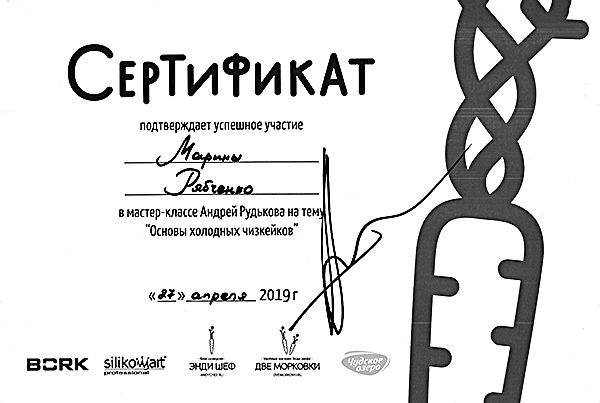 СЕРТИФИКАТ
подтверждает успешное участие
Марины
Рябченко
в мастер-классе Андрей Рудькова на тему
"Основы холодных чизкейков"
«27» апреля 2019 г
BORK silikomart ЭНДИ ШЕФ ДВЕ МОРКОВКИ Чудское озеро
professional